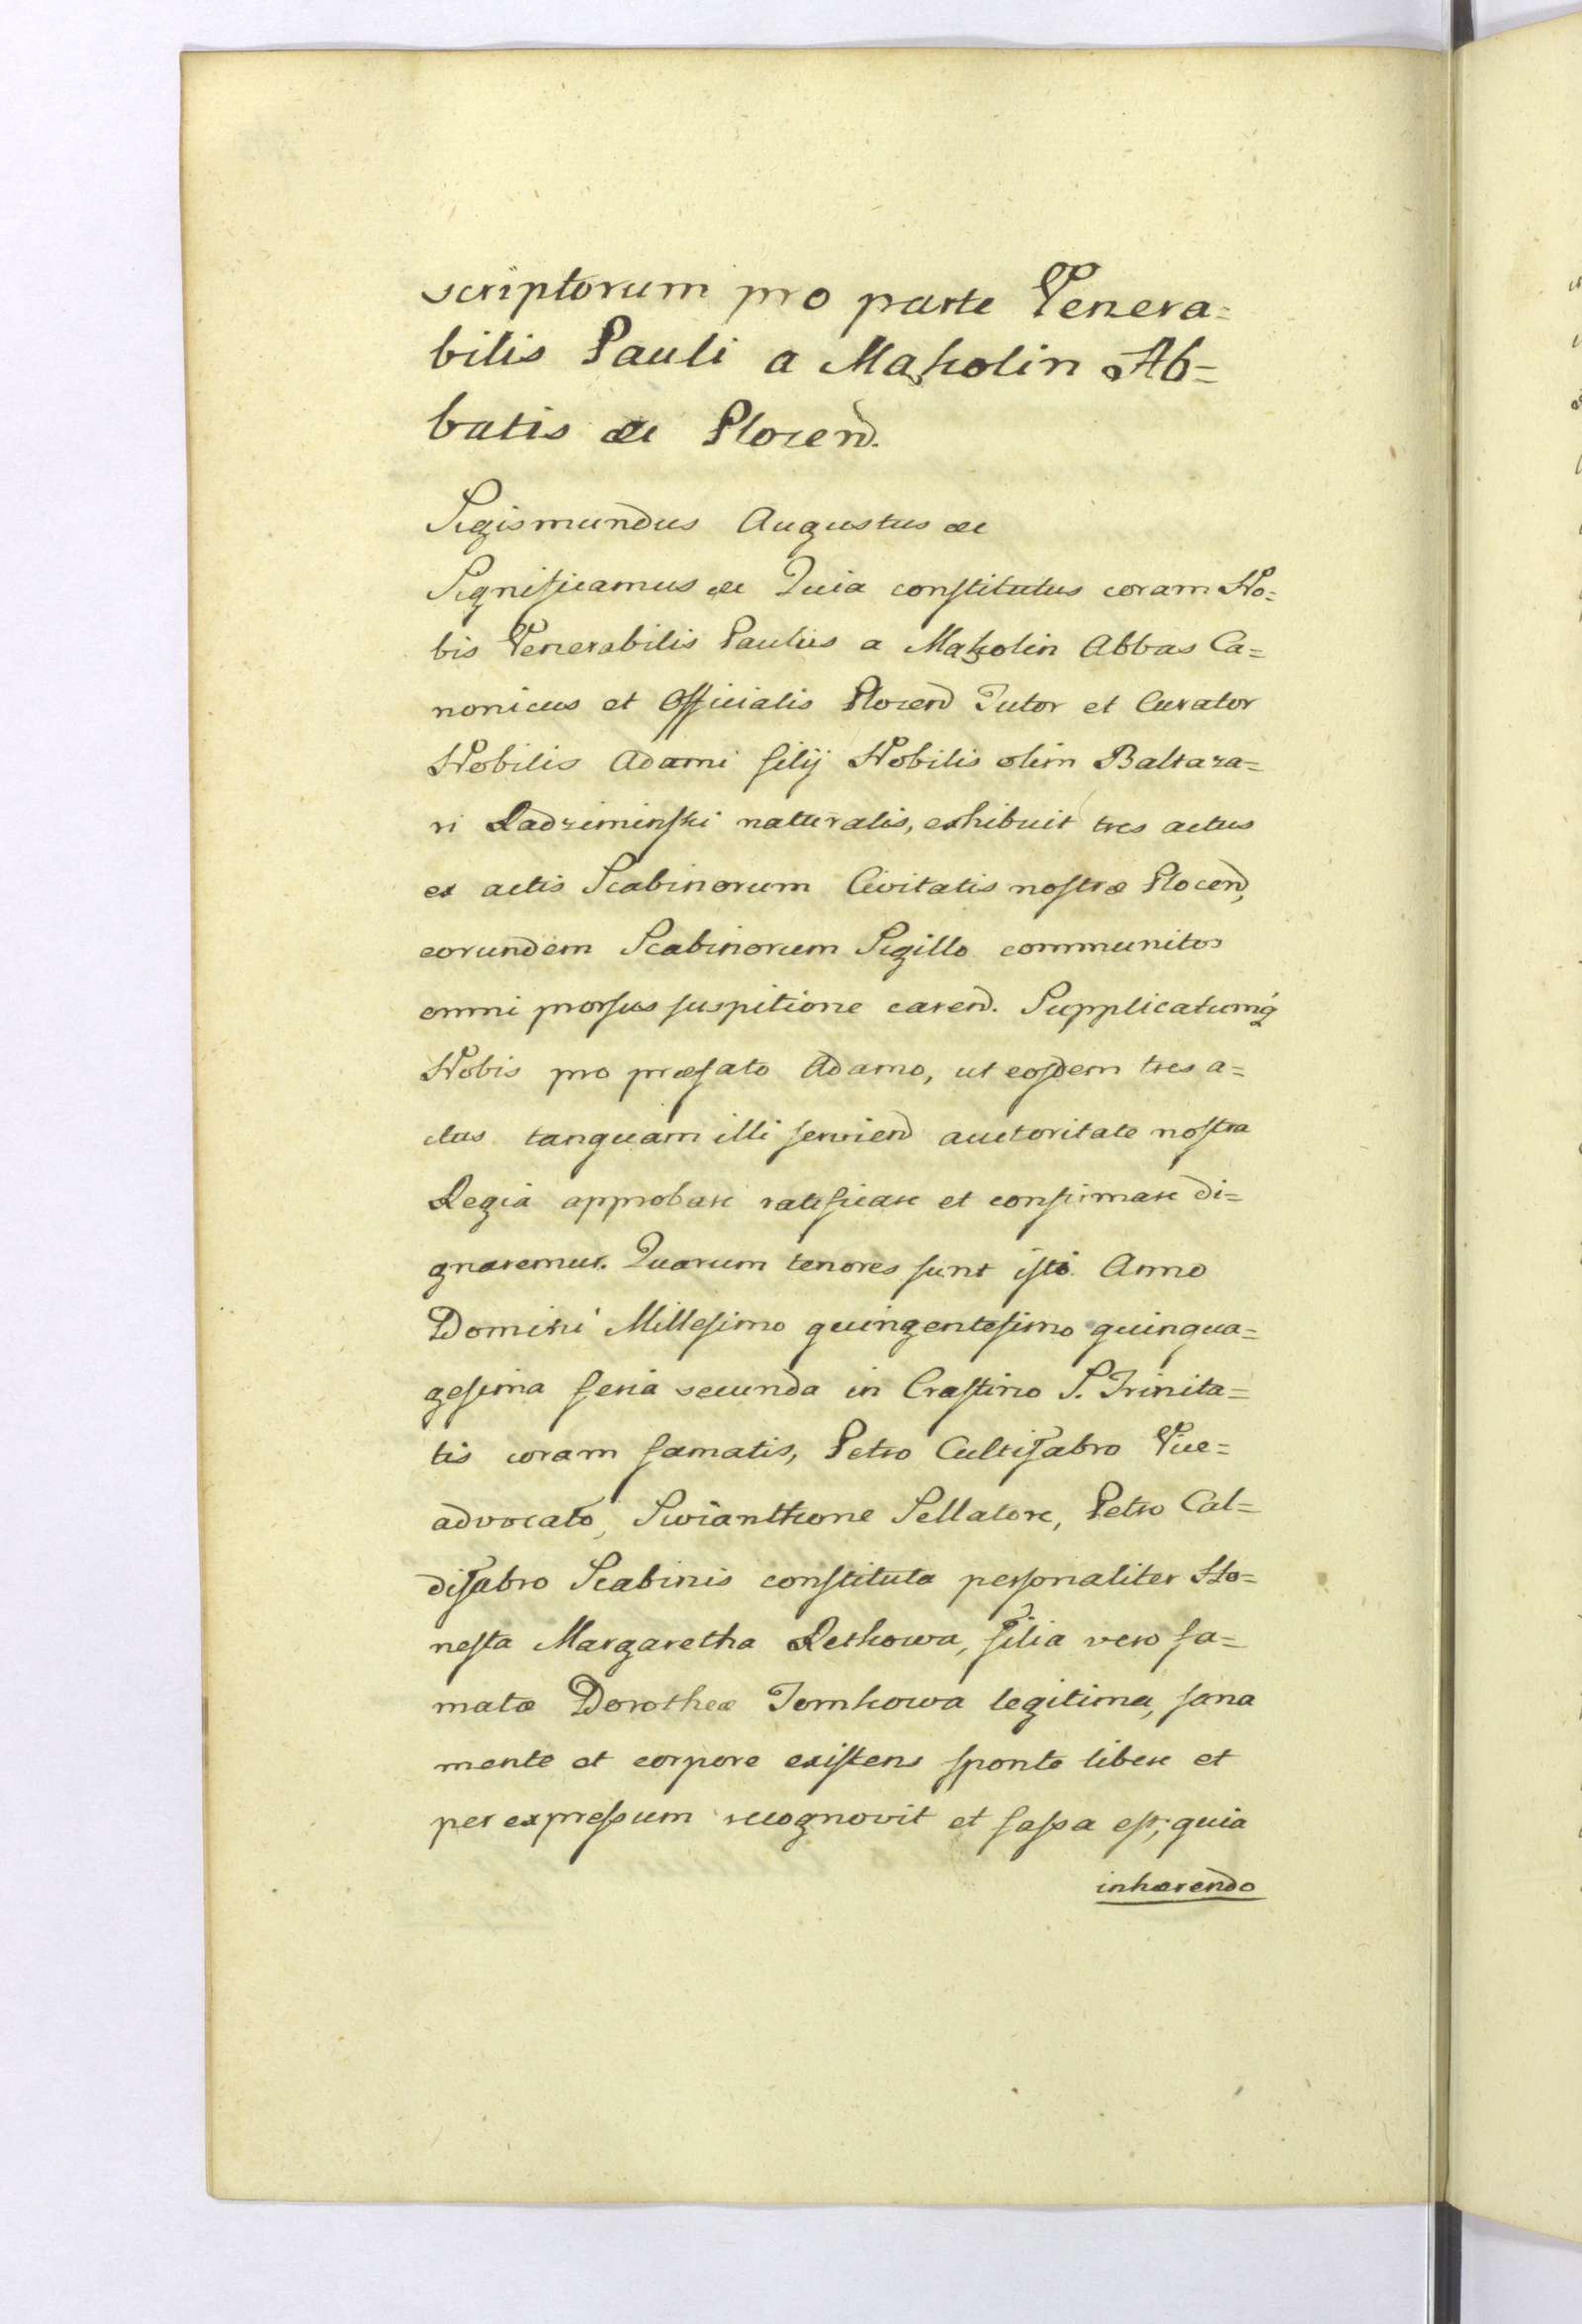 scriptorum pro parte Venera=
bilis Pauli a Mąkolin Ab=
batis &c Plocen̄.
Sigismundus Augustus &c
Significamus &c Quia constitutus coram No=
bis Venerabilis Paulus a Mąkolin Abbas Ca=
nonicus et Officialis Plocen̄ Tutor et Curator
Nobilis Adami filij Nobilis olim Baltaza=
ri Radziminski naturalis, exhibuit tres actus
ex actis Scabinorum Civitatis nostræ Plocen̄,
eorundem Scabinorum Sigillo communitos
omni prorsus suspitione caren̄. Supplicatumq́
Nobis pro præfato Adamo, ut eosdem tres a=
ctus tanquam illi servien̄ auctoritate nostra
Regia approbare ratificare et confirmare di=
gnaremur. Quorum tenores sunt isti. Anno
Domini Millesimo quingentesimo quinqua=
gesima feria secunda in Crastino S. Trinita=
tis coram famatis, Petro Cultifabro Vice=
advocato, Swianthone Sellatore, Petro Cal=
difabro Scabinis constituta personaliter Ho=
nesta Margaretha Rethowa, filia vero fa=
matæ Dorotheæ Tomkowa legitima, sana
mente et corpore existens sponte libere et
per expressum recognovit et fassa est, quia
inhærendo